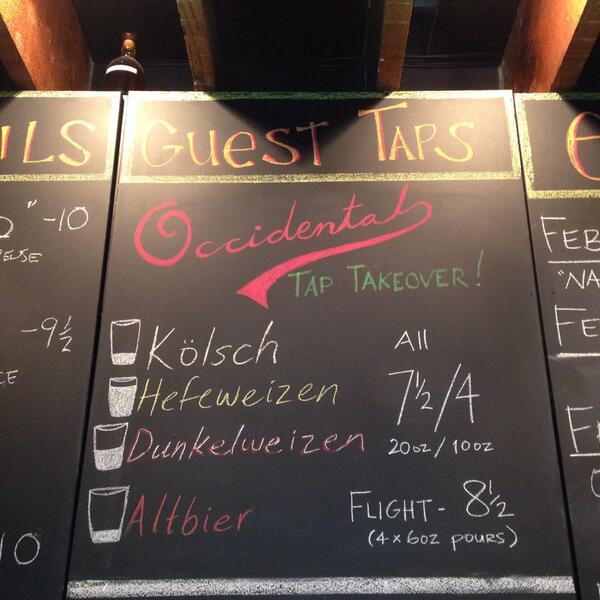 ILS
" -10
-9 1/2
10
GUEST TAPS
Occidental
TAP TAKEOVER!
Kölsch
Hefeweizen
Dunkelweizen
Altbier
All
7 1/2/4
20oz/10oz
FLIGHT- 8 1/2
(4 x 6oz pours)
FEB
"NA
FE